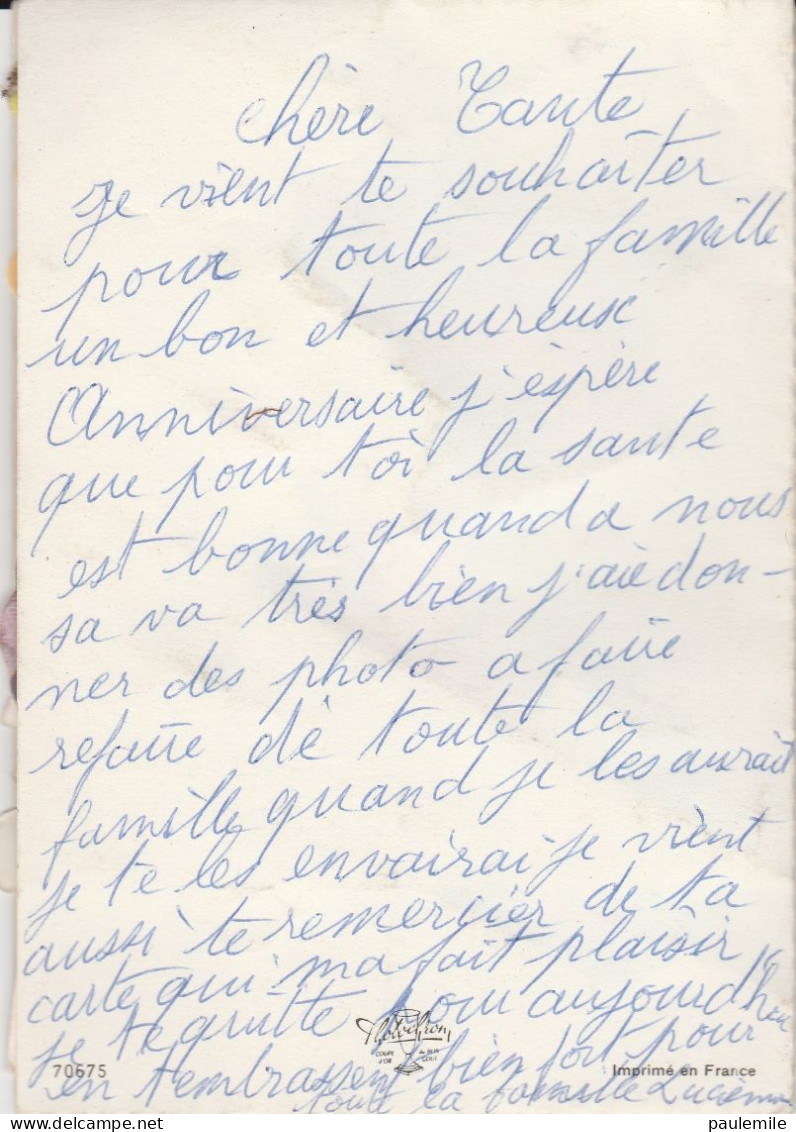 chère Tante
je vient te souhaiter
pour toute la famille
un bon et heureux
Anniversaire j'éspère
que pour toi la sante
est bonne quand a nous
sa va très bien j'aie don-
ner des photo a faire
refaire de toute la
famille quand je les aurait
je te les envairai je vient
aussi te remercier de ta
carte qui ma fait plaisir
je te quitte pour aujourdhui
en t'embrassent bien fort pour
toute la famille Lucienne
70675
COUPE D'OR
du BON GOUT
Imprimé en France
paulemile